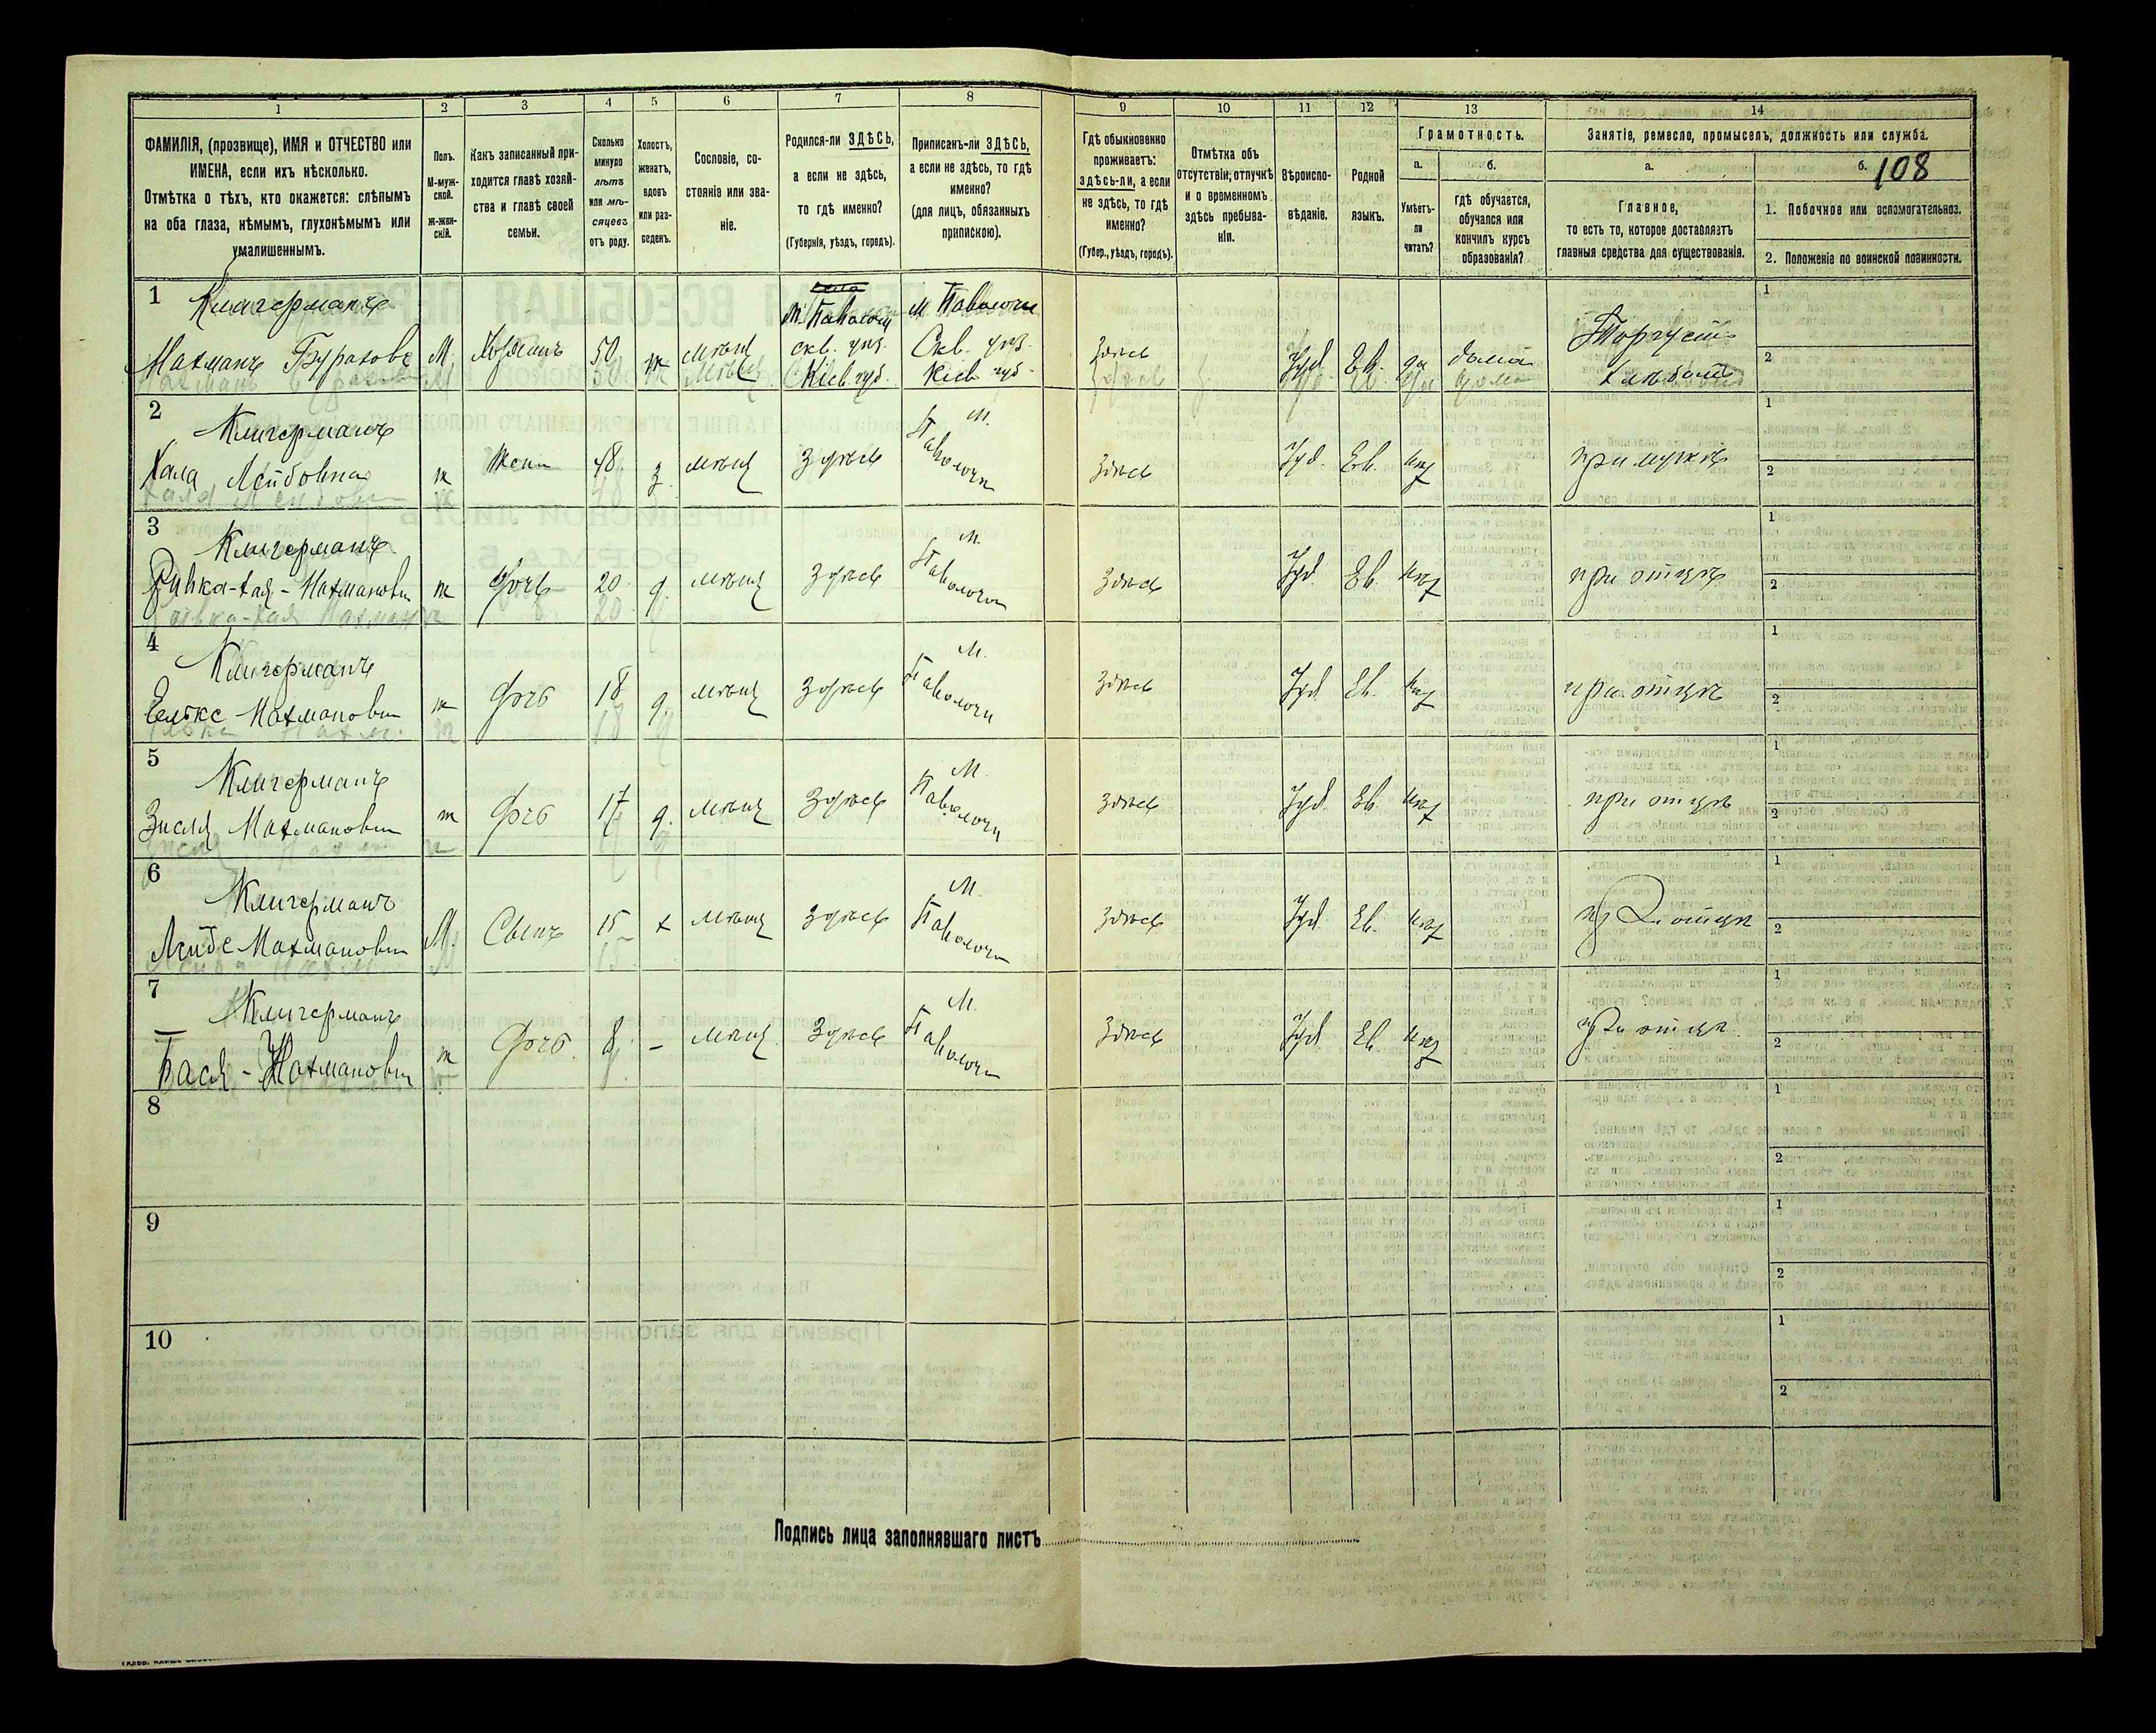 1
2
3
4
5
6
7
8
9
10
11
12
13
14
ФАМИЛІЯ, (прозвище), ИМЯ и ОТЧЕСТВО или
ИМЕНА, если ихъ нѣсколько.
Отмѣтка о тѣхъ, кто окажется: слѣпымъ
на оба глаза, нѣмымъ, глухонѣмымъ или
умалишеннымъ.
Полъ.
М-муж-
ской.
ж-жен-
скій.
Какъ записанный при-
ходится главѣ хозяй-
ства и главѣ своей
семьи.
Сколько
минуло
лѣтъ
или мѣ-
сяцевъ
отъ роду.
Холостъ,
женатъ,
вдовъ
или раз-
веденъ.
Сословіе, со-
стояніе или зва-
ніе.
Родился-ли ЗДѢСЬ,
а если не здѣсь,
то гдѣ именно?
(Губернія, уѣздъ, городъ).
Приписанъ-ли ЗДѢСЬ,
а если не здѣсь, то гдѣ
именно?
(для лицъ, обязанныхъ
припискою).
Гдѣ обыкновенно
проживаетъ:
здѣсь-ли, а если
не здѣсь, то гдѣ
именно?
(Губер., уѣздъ, городъ).
Отмѣтка объ
отсутствіи, отлучкѣ
и о временномъ
здѣсь пребыва-
ніи.
Вѣроиспо-
вѣданіе.
Родной
языкъ.
Грамотность.
а.
б.
Умѣетъ-
ли
читать?
гдѣ обучается,
обучался или
кончилъ курсъ
образованія?
Занятіе, ремесло, промыселъ, должность или служба.
а.
б.
108
Главное,
то есть то, которое доставляетъ
главныя средства для существованія.
1. Побочное или вспомогательное.
2. Положеніе по воинской повинности.
1
Клигерманъ
Нахманъ
М.
Хозяинъ
50
ж
мѣщ
м. Паволочи
скв. уѣз.
Кіев. губ.
м. Паволочи
Скв. уѣз.
Кіев. губ.
Здѣсь
Іуд. Ев. да дома
1
2
2
Клигерманъ
Хая Лейбовна
ж
Жена
48
з
мѣщ
Здѣсь
м.
Паволочи
Здѣсь
Іуд. Ев.
при мужѣ
1
2
3
Клигерманъ
Ривка-Хая-Нахмановн
ж
дочь
20
д.
мѣщ
Здѣсь
м.
Паволочи
Здѣсь
Іуд. Ев.
при отцѣ
1
2
4
Клигерманъ
Нахмановн
ж
дочь
18
д.
мѣщ
Здѣсь
м.
Паволочи
Здѣсь
Іуд. Ев.
при отцѣ
1
2
5
Клигерманъ
Зисля Нахмановн
ж
дочь
17
д.
мѣщ
Здѣсь
м.
Паволочи
Здѣсь
Іуд. Ев.
при отцѣ
1
2
6
Клигерманъ
Нахманови
М.
Сынъ
15
х
мѣщ
Здѣсь
м.
Паволочи
Здѣсь
Іуд. Ев.
при отцѣ
1
2
7
Клигерманъ
Бася-Нахмановн
ж
дочь
8
-
мѣщ
Здѣсь
м.
Паволочи
Здѣсь
Іуд. Ев.
при отцѣ
1
2
8
1
2
9
1
2
10
1
2
Подпись лица заполнявшаго листъ